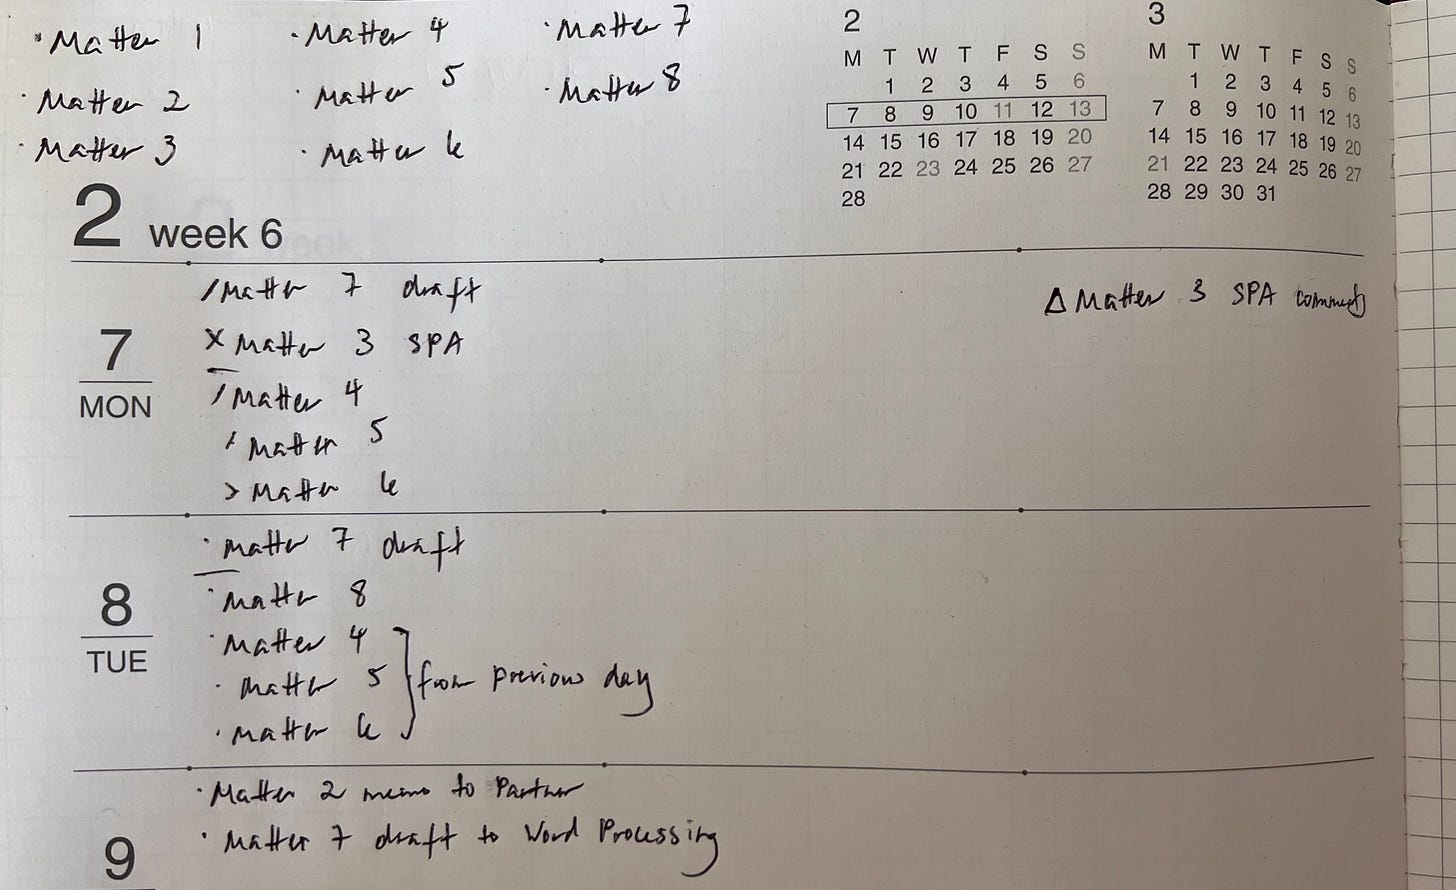 · Matter 1
· Matter 2
· Matter 3
· Matter 4
· Matter 5
· Matter 6
· Matter 7
· Matter 8
2
M T W T F S S
1 2 3 4 5 6
7 8 9 10 11 12 13
14 15 16 17 18 19 20
21 22 23 24 25 26 27
28
3
M T W T F S S
1 2 3 4 5 6
7 8 9 10 11 12 13
14 15 16 17 18 19 20
21 22 23 24 25 26 27
28 29 30 31
2 week 6
7
MON
/ Matter 7 draft
x Matter 3 SPA
/ Matter 4
/ Matter 5
> Matter 6
Δ Matter 3 SPA comments
8
TUE
· Matter 7 draft
· Matter 8
· Matter 4
· Matter 5
· Matter 6
from previous day
9
· Matter 2 memo to Partner
· Matter 7 draft to Word Processing